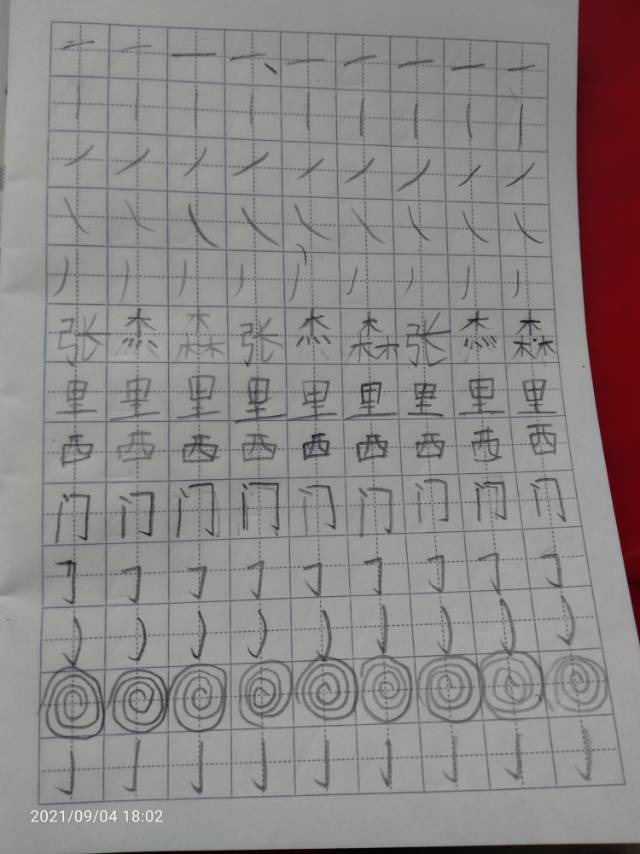 一 一 一 一 一 一 一 一 一
丨 丨 丨 丨 丨 丨 丨 丨 丨
㇀ ㇀ ㇀ ㇀ ㇀ ㇀ ㇀ ㇀ ㇀
㇏ ㇏ ㇏ ㇏ ㇏ ㇏ ㇏ ㇏ ㇏
丿 丿 丿 丿 丿 丿 丿 丿 丿
张 杰 森 张 杰 森 张 杰 森
里 里 里 里 里 里 里 里 里
西 西 西 西 西 西 西 西 西
门 门 门 门 门 门 门 门 门
㇆ ㇆ ㇆ ㇆ ㇆ ㇆ ㇆ ㇆ ㇆
㇁ ㇁ ㇁ ㇁ ㇁ ㇁ ㇁ ㇁ ㇁
亅 亅 亅 亅 亅 亅 亅 亅 亅
2021/09/04 18:02